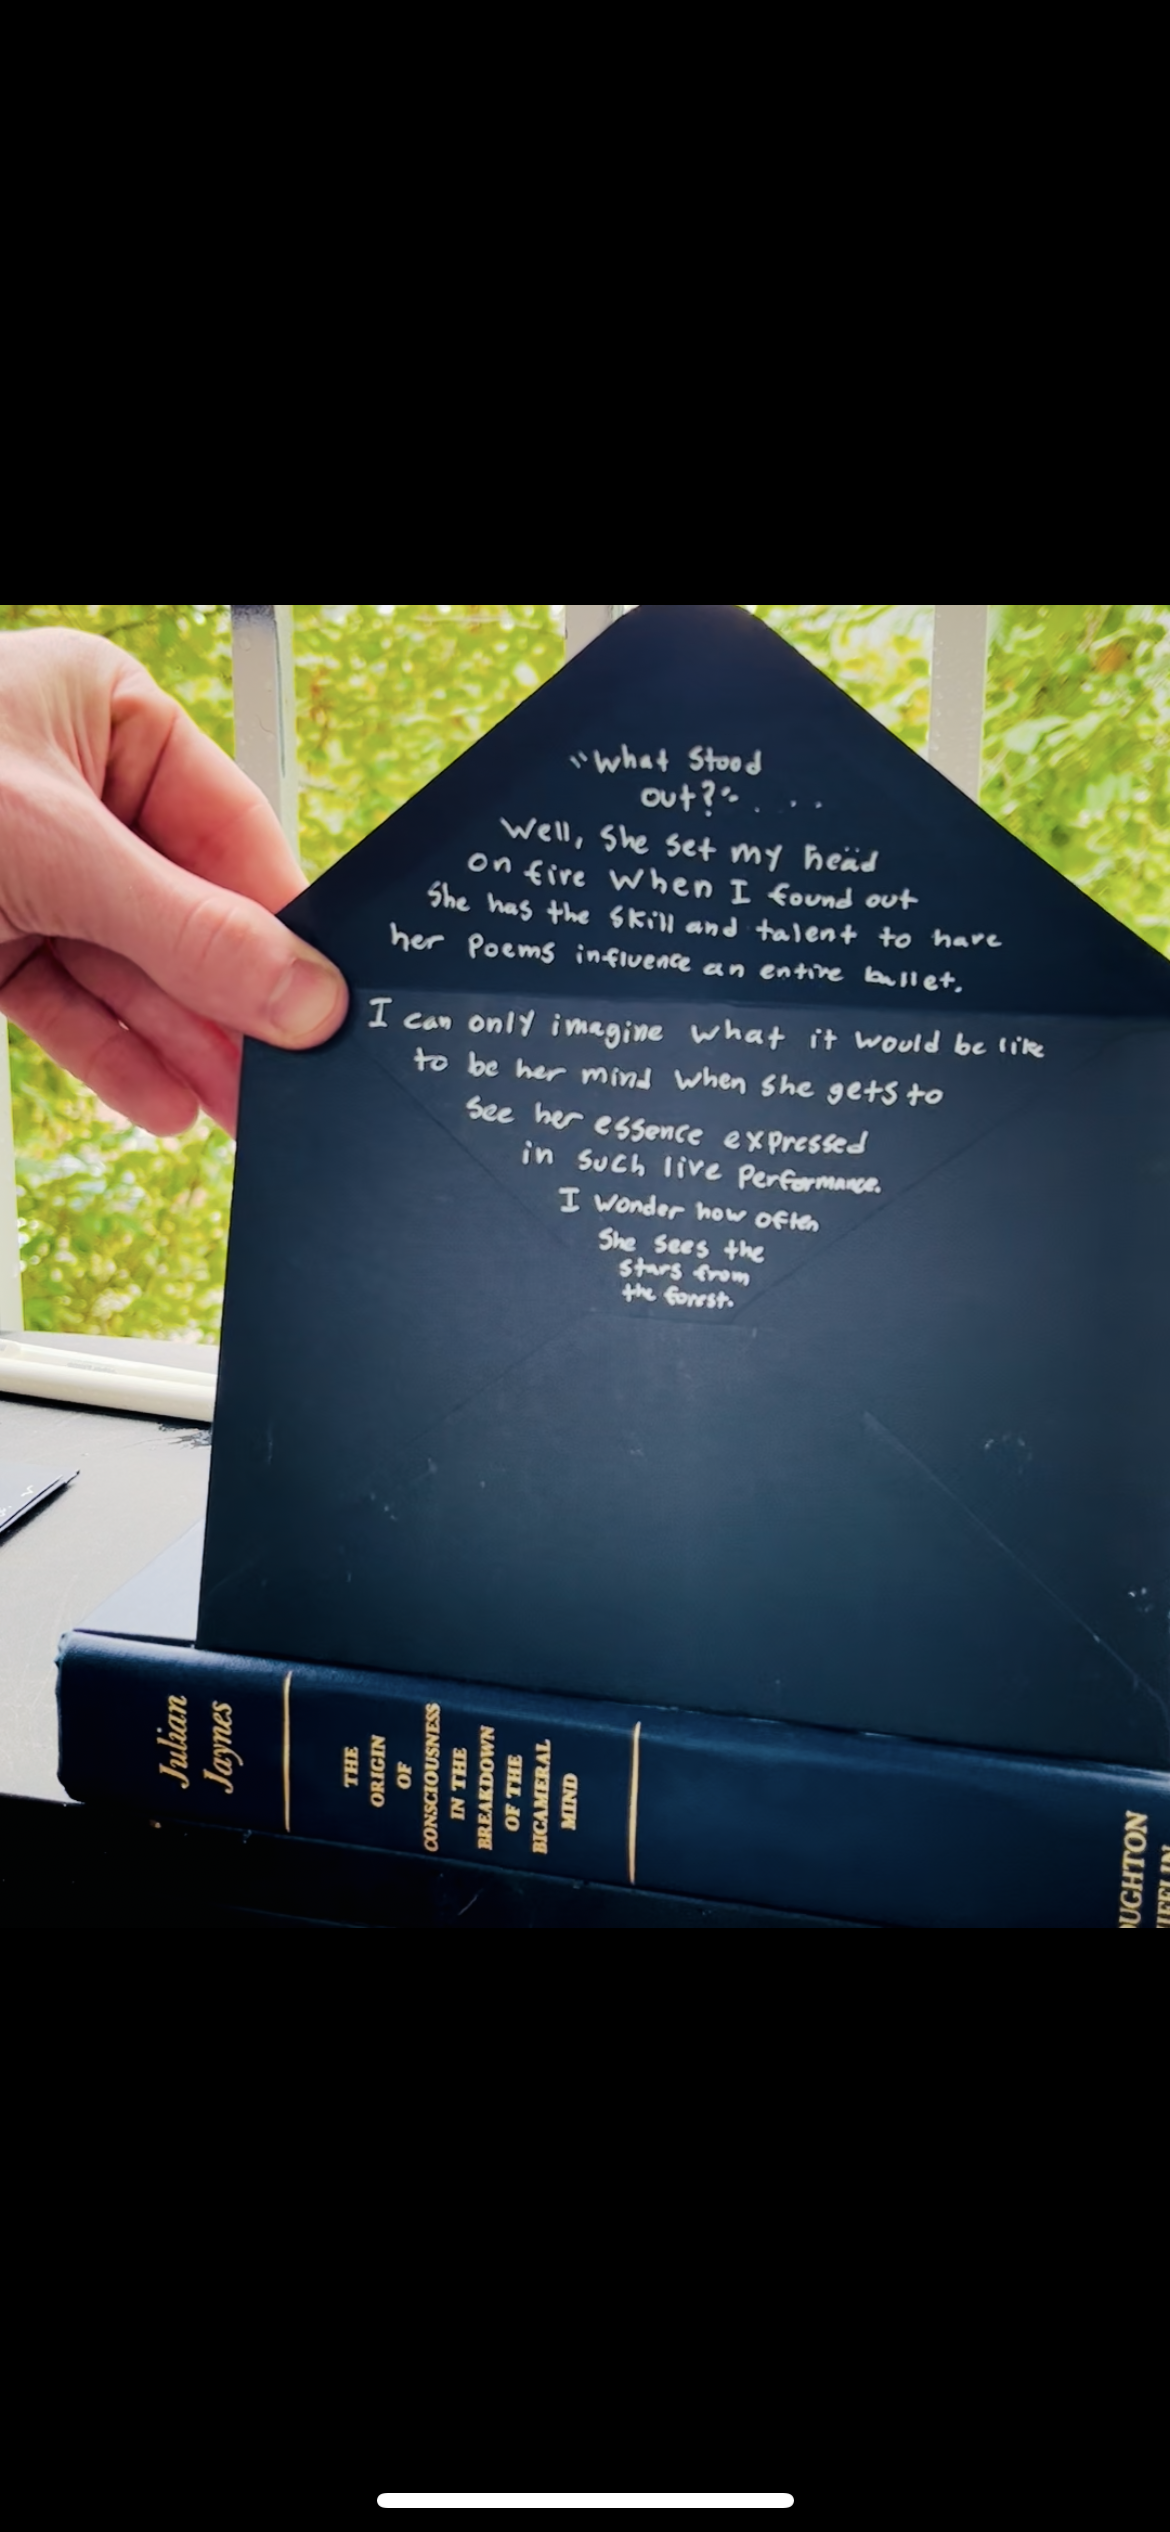 "What Stood
out?". . . .
Well, she set my heäd
on fire when I found out
she has the skill and talent to have
her poems influence an entire ballet.
I can only imagine what it would be like
to be her mind when she gets to
see her essence expressed
in such live performance.
I wonder how often
She sees the
stars from
the forest.
Julian
Jaynes
THE
ORIGIN
OF
CONSCIOUSNESS
IN THE
BREAKDOWN
OF THE
BICAMERAL
MIND
OUGHTON